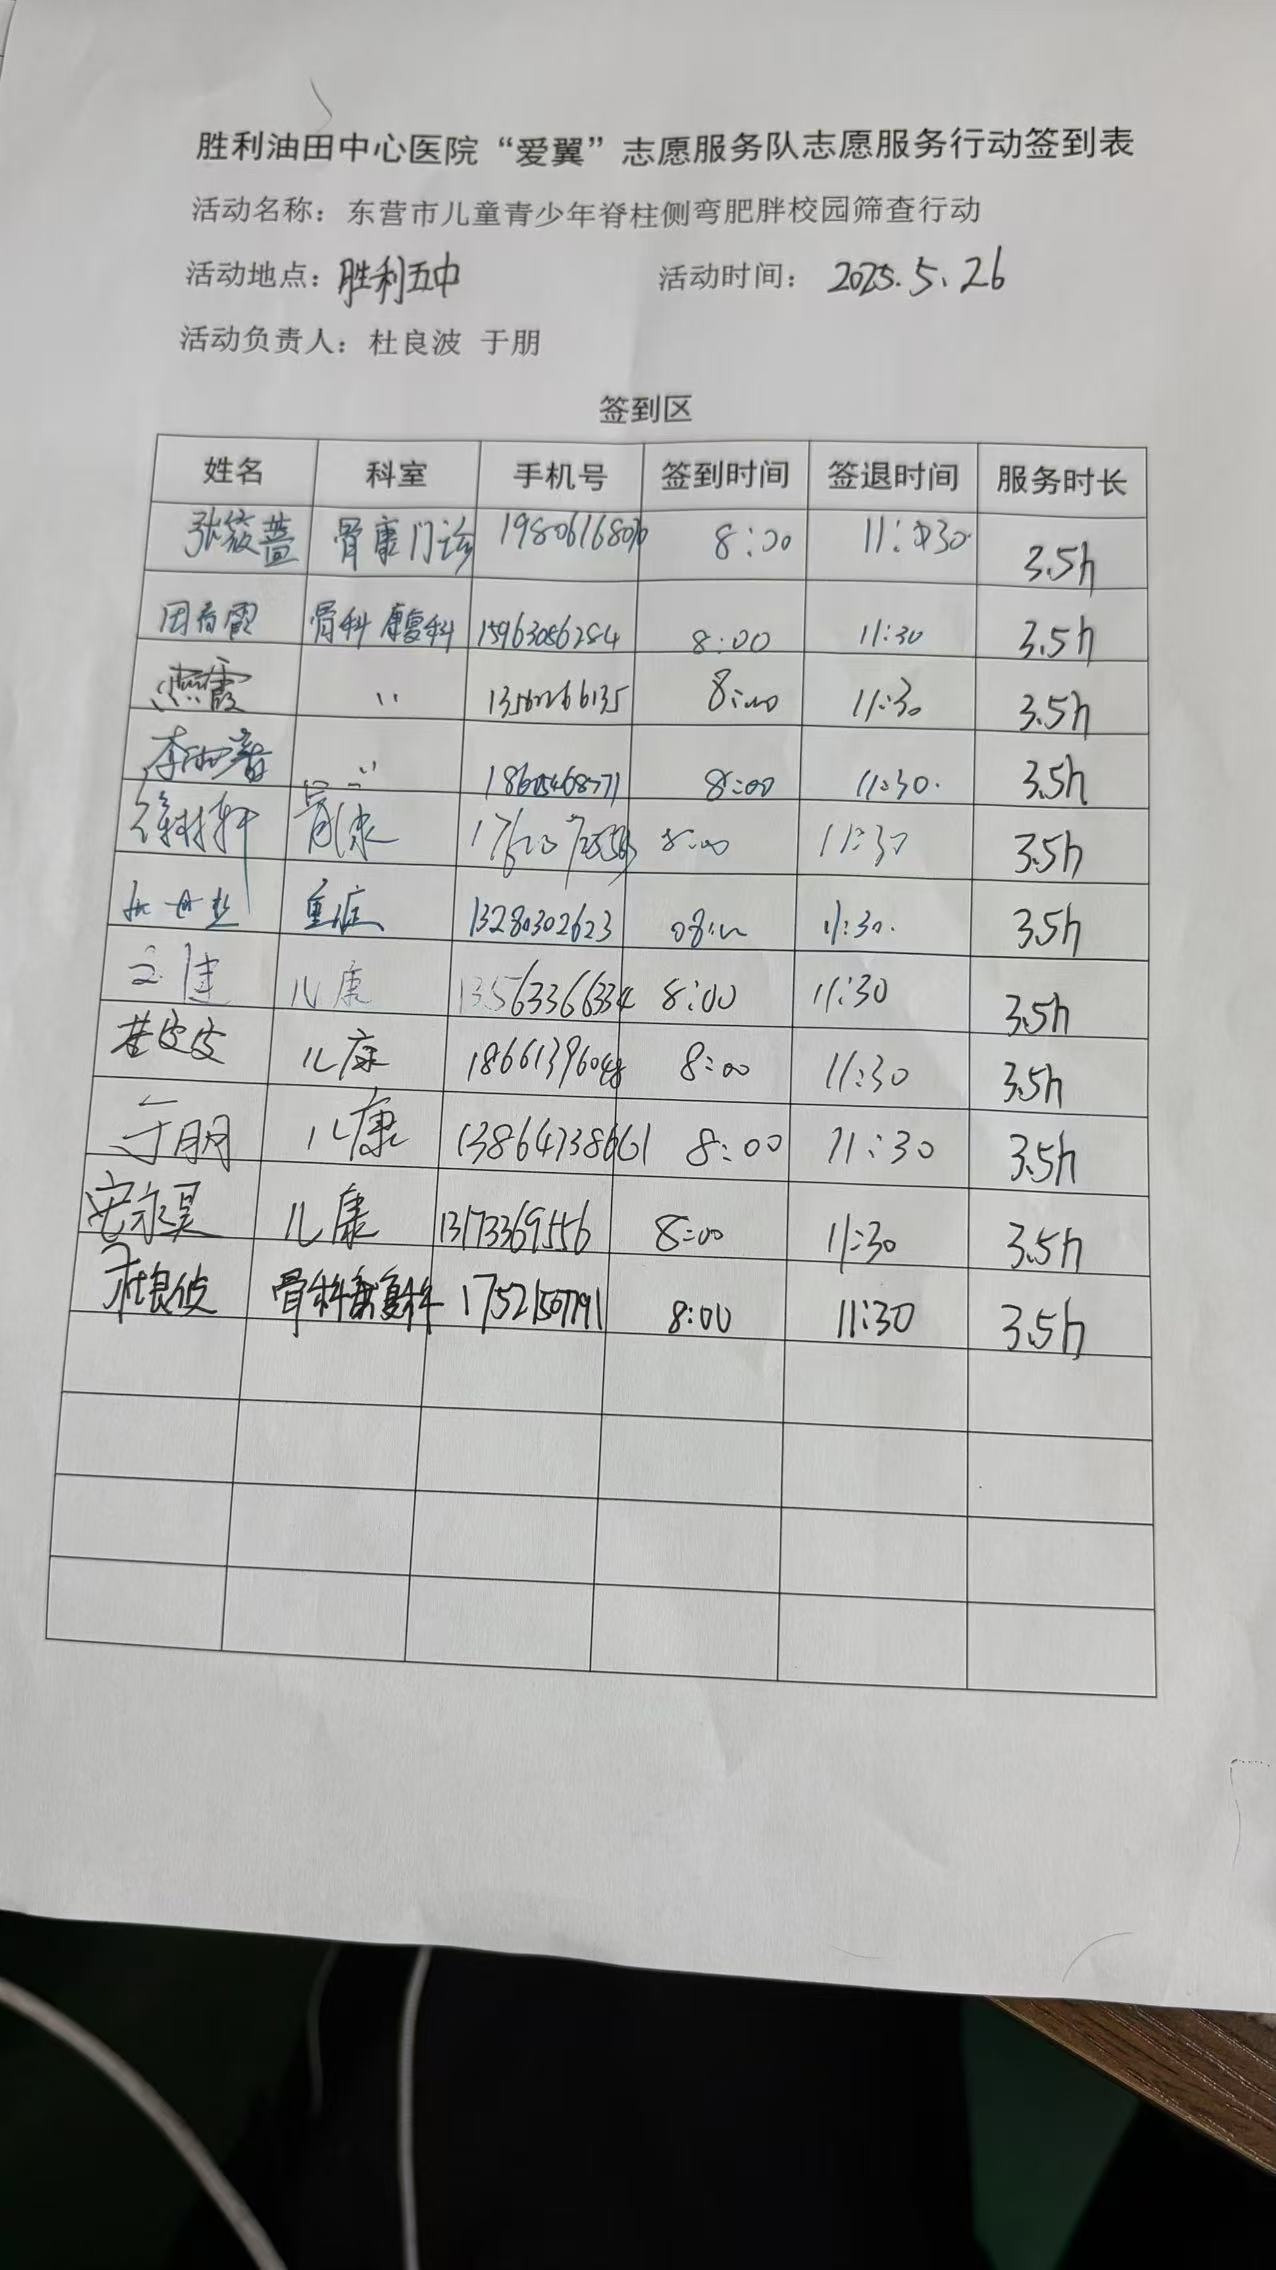 胜利油田中心医院“爱翼”志愿服务队志愿服务行动签到表
活动名称：东营市儿童青少年脊柱侧弯肥胖校园筛查行动
活动地点：胜利五中 活动时间：2025.5.26
活动负责人：杜良波 于朋
签到区
姓名 科室 手机号 签到时间 签退时间 服务时长
张筱蔷 骨康门诊 8:00 11:30 3.5h
骨科康复科 15963056284 8:00 11:30 3.5h
燕霞 〃 8:00 11:30 3.5h
〃 8:00 11:30. 3.5h
骨康 8:00 11:30 3.5h
重症 13280302623 08:00 11:30. 3.5h
儿康 13563366334 8:00 11:30 3.5h
儿康 18661396048 8:00 11:30 3.5h
于朋 儿康 13864738661 8:00 11:30 3.5h
安永昊 儿康 13173369556 8:00 11:30 3.5h
杜良波 骨科康复科 17521507791 8:00 11:30 3.5h